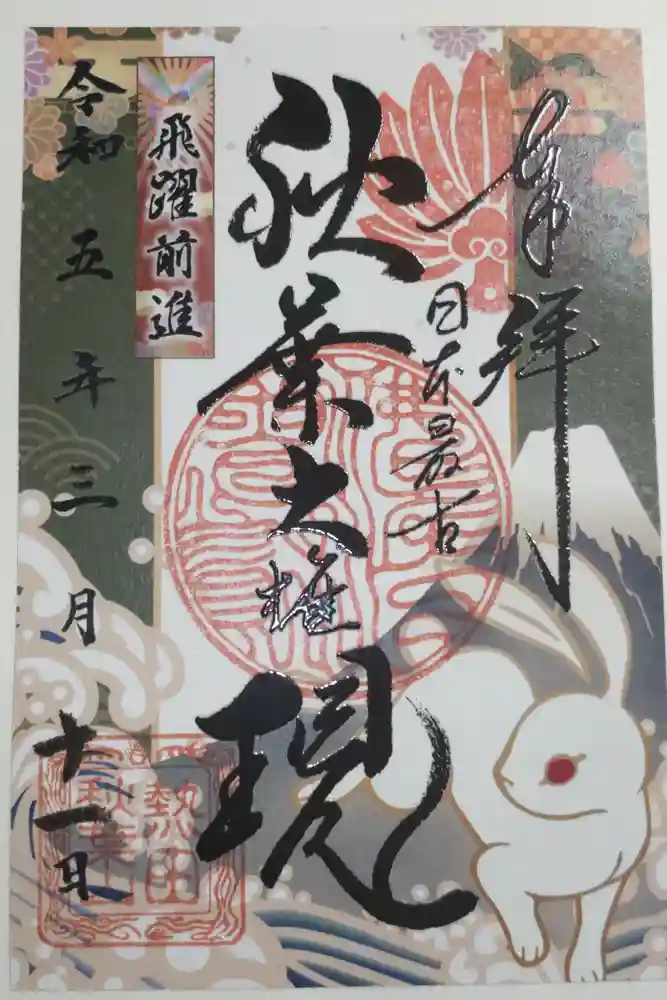 奉拝
日本最古
秋葉大権現
飛躍前進
令和五年三月十一日
熱田
秋葉山